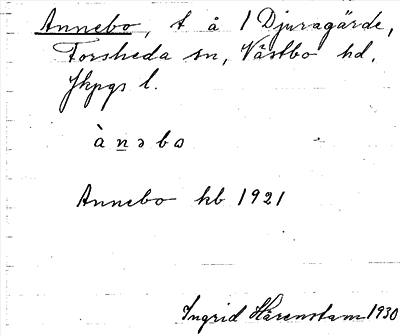 Annebo, t å 1 Djuragärde,
Forsheda sn, Västbo hd,
Jkpgs l.
ànəbo
Annebo hb 1921
Ingrid Hårenstam 1930